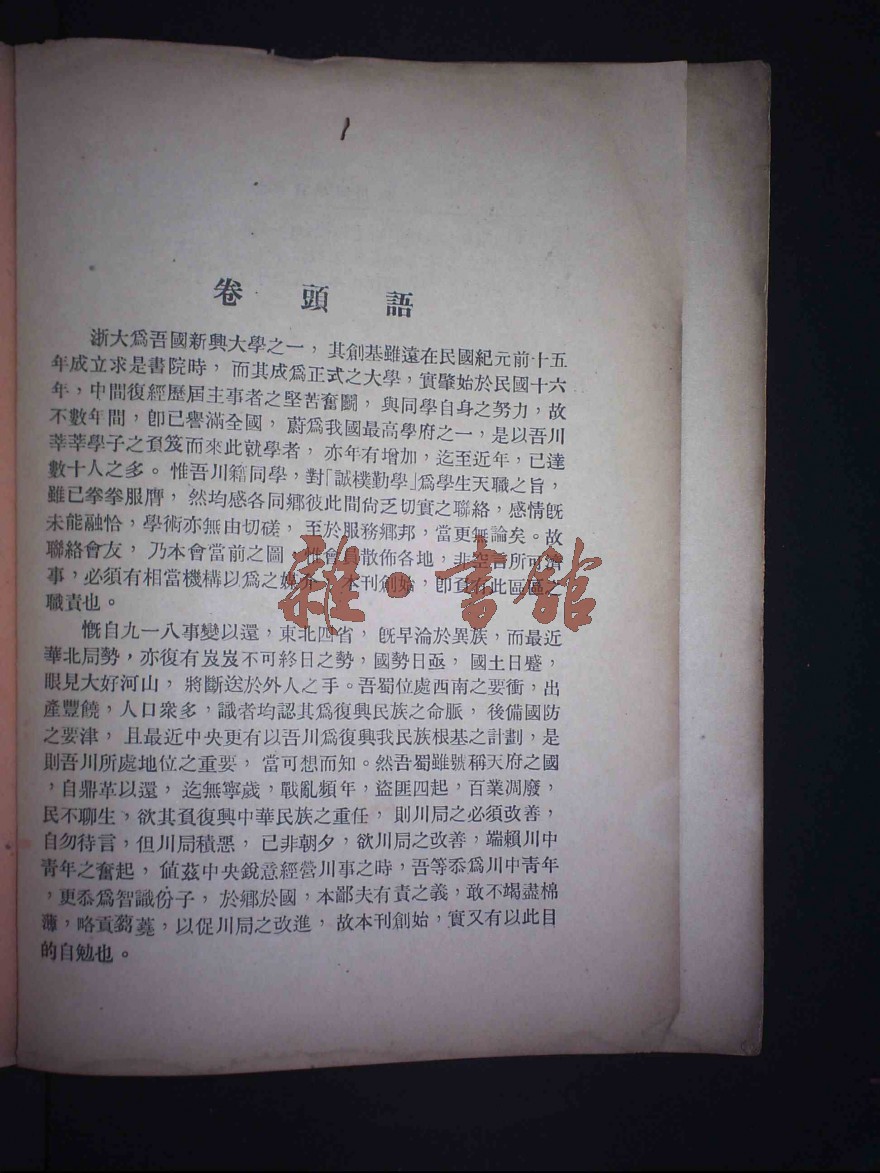 卷頭語
浙大爲吾國新興大學之一，其創基雖遠在民國紀元前十五
年成立求是書院時，而其成爲正式之大學，實肇始於民國十六
年，中間復經歷屆主事者之堅苦奮鬭，與同學自身之努力，故
不數年間，卽已譽滿全國，蔚爲我國最高學府之一，是以吾川
莘莘學子之負笈而來此就學者，亦年有增加，迄至近年，已達
數十人之多。惟吾川籍同學，對「誠樸勤學」爲學生天職之旨，
雖已拳拳服膺，然均感各同鄉彼此間尙乏切實之聯絡，感情旣
未能融恰，學術亦無由切磋，至於服務鄉邦，當更無論矣。故
聯絡會友，乃本會當前之圖，惟會員散佈各地，非空言所可濟
事，必須有相當機構以爲之媒介，本刊創始，卽負有此區區之
職責也。
慨自九一八事變以還，東北四省，旣早淪於異族，而最近
華北局勢，亦復有岌岌不可終日之勢，國勢日亟，國土日蹙，
眼見大好河山，將斷送於外人之手。吾蜀位處西南之要衝，出
產豐饒，人口衆多，識者均認其爲復興民族之命脈，後備國防
之要津，且最近中央更有以吾川爲復興我民族根基之計劃，是
則吾川所處地位之重要，當可想而知。然吾蜀雖號稱天府之國
，自鼎革以還，迄無寧歲，戰亂頻年，盜匪四起，百業凋廢，
民不聊生，欲其負復興中華民族之重任，則川局之必須改善，
自勿待言，但川局積惡，已非朝夕，欲川局之改善，端賴川中
靑年之奮起，値茲中央銳意經營川事之時，吾等忝爲川中靑年
，更忝爲智識份子，於鄉於國，本鄙夫有責之義，敢不竭盡棉
薄，略貢蒭蕘，以促川局之改進，故本刊創始，實又有以此目
的自勉也。
雜·書館